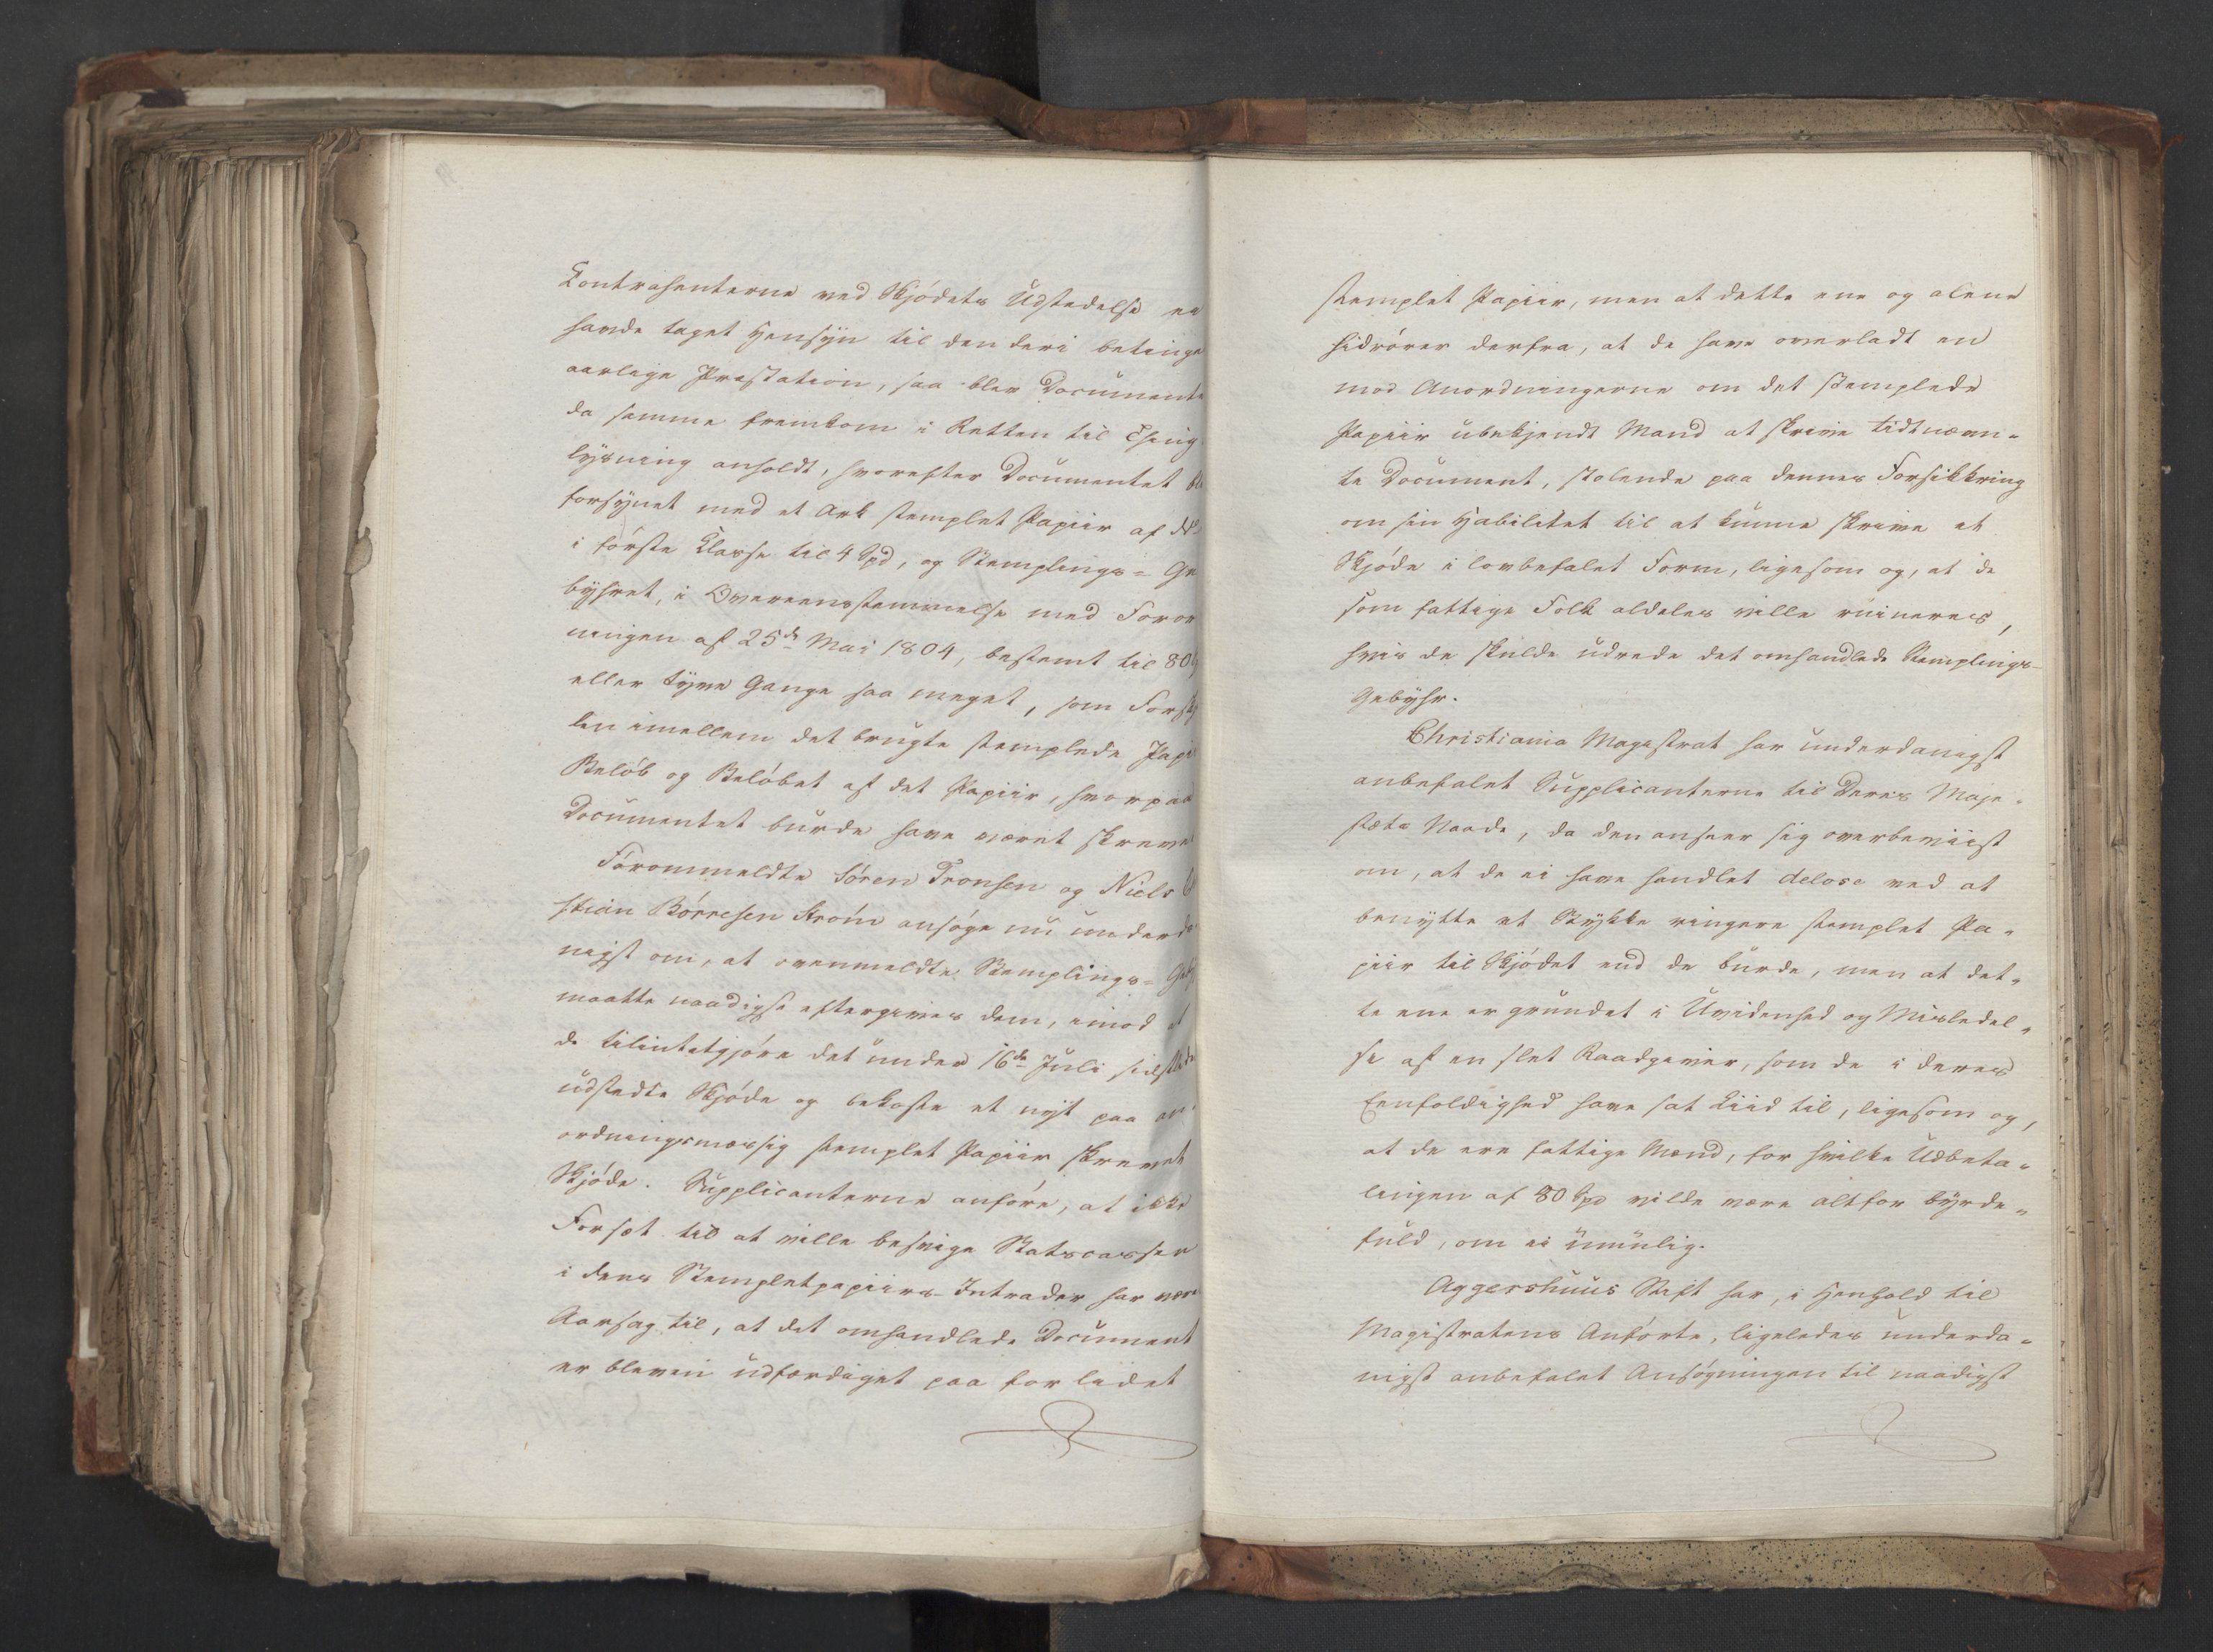 Contrahenterne ved Skjödets Udstedelse ei
havde taget Hensyn til den deri beting
aarlige Præstation, saa blev Document
da samme fremkom i Retten til Thing
lysning anholdt, hvorefter Documentet bl
forsynet med et Ark stemplet Papiir af
i förste Classe til 4 Spd, og Stemplings- Ge
byhret, i Overeensstemmelse med Foror
ningen af 25de Mai 1804, bestemt til 80
eller tyve Gange saa meget, som Forskj
len imellem det brugte stemplede Papi
Belöb og Belöbet af det Papiir, hvorpaa
Documentet burde have været skreve
Förommeldte Sören Tronsen og Niels
stian Börresen Ström ansöge nu underda
nigst om, at ovenmeldte Stemplings- Geby
maatte naadigst eftergives dem, imod at
de tilintetgjöre det under 16de Juli sidstl
udstedte Skjöde og bekoste et nyt paa an-
ordningsmæssig stemplet Papiir skrevet
Skjöde. Supplicanterne anföre, at ikke
Forsæt til at ville besvige Statscassen
i dens Stempletpapiirs-Intrader har være
Aarsag til, at det omhandlede Document
er bleven udfærdiget paa for lidet
stemplet Papiir, men at dette ene og alene
hidrörer derfra, at de have overladt en
med Anordningerne om det stemplede
Papiir ubekjendt Mand at skrive tidtnævn-
te Document, stolende paa dennes Forsikkring
om sin Habilitet til at kunne skrive et
Skjöde i lovbefalet Form, ligesom og, at de
som fattige Folk aldeles ville ruineres,
hvis de skulde udrede det omhandlede Stemplings-
Gebyhr.
Christiania Magistrat har underdanigst
anbefalet Supplicanterne til Deres Maje-
stæts Naade, da den anseer sig overbeviist
om, at de ei have handlet delose ved at
benytte et Stykke ringere stemplet Pa-
piir til Skjödet end de burde, men at det-
te ene er grundet i Uvidenhed og Misledel-
se af en slet Raadgiver, som de i deres
Eenfoldighed have sat Liid til, ligesom og,
at de ere fattige Mænd, for hvilke Udbeta-
lingen af 80 Spd vilde være altfor byrde-
fuld, om ei umulig.
Aggershuus Stift har, i Henhold til
Magistratens Anförte, ligeledes underda-
nigst anbefalet Ansögningen til naadigst